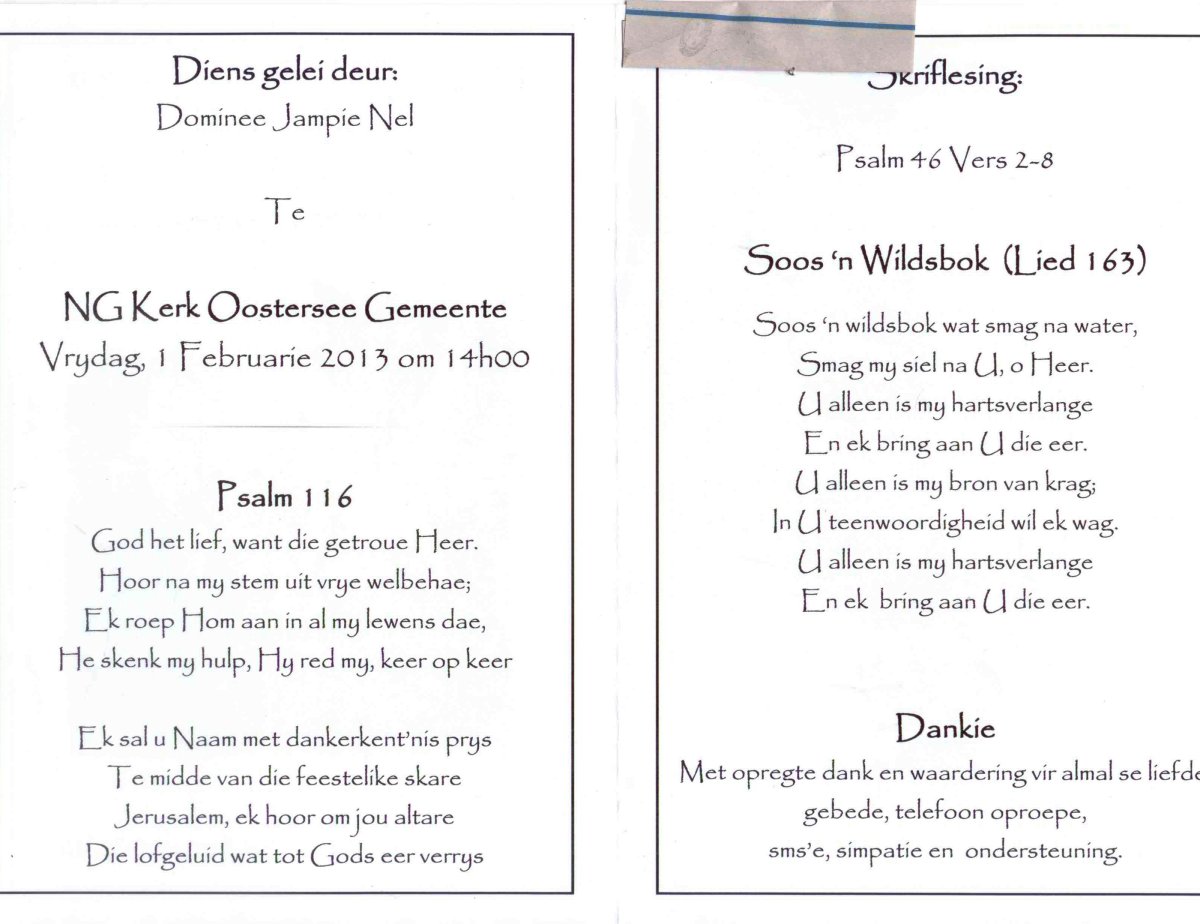 Diens gelei deur:
Dominee Jampie Nel
Te
NG Kerk Oostersee Gemeente
Vrydag, 1 Februarie 2013 om 14h00
Psalm 116
God het lief, want die getroue Heer.
Hoor na my stem uit vrye welbehae;
Ek roep Hom aan in al my lewens dae,
He skenk my hulp, Hy red my, keer op keer
Ek sal u Naam met dankerkent'nis prys
Te midde van die feestelike skare
Jerusalem, ek hoor om jou altare
Die lofgeluid wat tot Gods eer verrys
Skriflesing:
Psalm 46 Vers 2-8
Soos ‘n Wildsbok (Lied 163)
Soos ‘n wildsbok wat smag na water,
Smag my siel na U, o Heer.
U alleen is my hartsverlange
En ek bring aan U die eer.
U alleen is my bron van krag;
In U teenwoordigheid wil ek wag.
U alleen is my hartsverlange
En ek bring aan U die eer.
Dankie
Met opregte dank en waardering vir almal se liefde
gebede, telefoon oproepe,
sms'e, simpatie en ondersteuning.